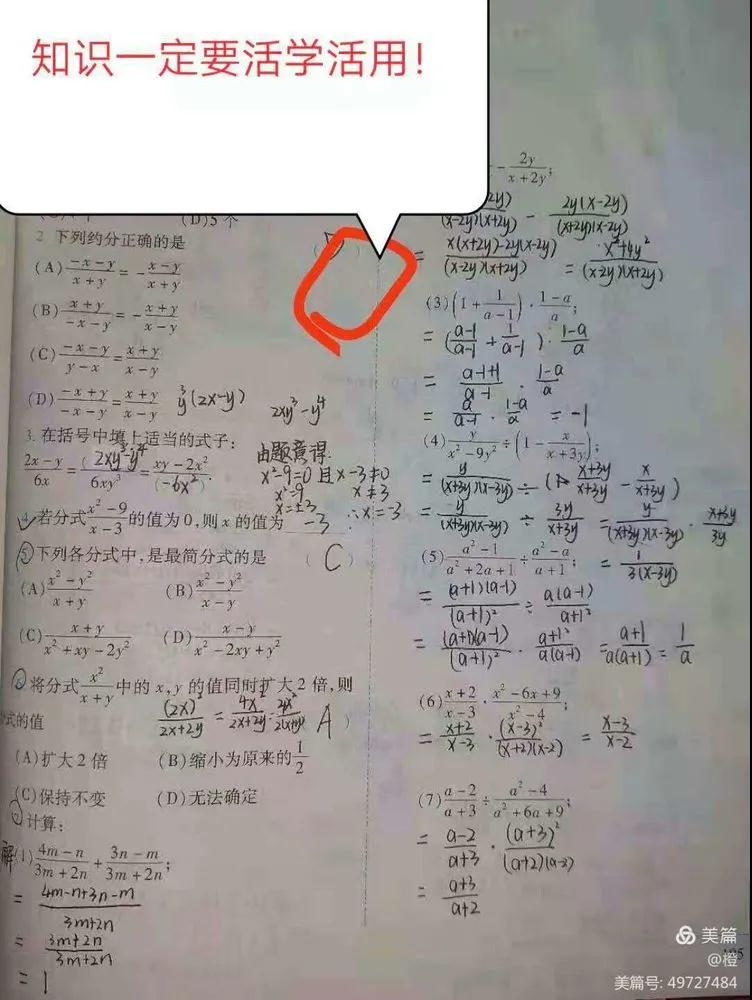 知识一定要活学活用!
(D)5个
2 下列约分正确的是 ( D )
(A) \frac{-x-y}{x+y} = -\frac{x-y}{x+y}
(B) \frac{x+y}{-x-y} = -\frac{x+y}{x-y}
(C) \frac{-x-y}{y-x} = \frac{x+y}{x-y}
(D) \frac{-x+y}{-x-y} = \frac{x+y}{x-y}
y³(2x-y) 2xy³-y⁴
3. 在括号中填上适当的式子:
\frac{2x-y}{6x} = \frac{(2xy³-y⁴)}{6xy³} = \frac{xy-2x²}{(-6x²)}.
由题意得:
x²-9=0 且 x-3≠0
x²=9 x≠3
x=±3 ∴x=-3
4 若分式\frac{x²-9}{x-3}的值为0,则x的值为 -3
5 下列各分式中,是最简分式的是 ( C )
(A) \frac{x²-y²}{x+y} (B) \frac{x²-y²}{x-y}
(C) \frac{x+y}{x²+xy-2y²} (D) \frac{x-y}{x²-2xy+y²}
6 将分式\frac{x²}{x+y}中的x,y的值同时扩大2倍,则
式的值 \frac{(2x)²}{2x+2y} = \frac{4x²}{2x+2y} A )
(A)扩大2倍 (B)缩小为原来的\frac{1}{2}
(C)保持不变 (D)无法确定
计算:
解(1) \frac{4m-n}{3m+2n} + \frac{3n-m}{3m+2n};
= \frac{4m-n+3n-m}{3m+2n}
= \frac{3m+2n}{3m+2n}
= 1
- \frac{2y}{x+2y};
\frac{}{(x-2y)(x+2y)} - \frac{2y(x-2y)}{(x+2y)(x-2y)}
= \frac{x(x+2y)-2y(x-2y)}{(x-2y)(x+2y)} = \frac{x²+4y²}{(x-2y)(x+2y)}
(3) (1+\frac{1}{a-1}) · \frac{1-a}{a};
= (\frac{a-1}{a-1} + \frac{1}{a-1}) · \frac{1-a}{a}
= \frac{a-1+1}{a-1} · \frac{1-a}{a}
= \frac{a}{a-1} · \frac{1-a}{a} = -1
(4) \frac{y}{x²-9y²} ÷ (1-\frac{x}{x+3y});
= \frac{y}{(x+3y)(x-3y)} ÷ (\frac{x+3y}{x+3y} - \frac{x}{x+3y})
= \frac{y}{(x+3y)(x-3y)} ÷ \frac{3y}{x+3y} = \frac{y}{(x+3y)(x-3y)} · \frac{x+3y}{3y}
= \frac{1}{3(x-3y)}
(5) \frac{a²-1}{a²+2a+1} ÷ \frac{a²-a}{a+1};
= \frac{(a+1)(a-1)}{(a+1)²} ÷ \frac{a(a-1)}{a+1}
= \frac{(a+1)(a-1)}{(a+1)²} · \frac{a+1}{a(a-1)} = \frac{a+1}{a(a+1)} = \frac{1}{a}
(6) \frac{x+2}{x-3} · \frac{x²-6x+9}{x²-4};
= \frac{x+2}{x-3} · \frac{(x-3)²}{(x+2)(x-2)} = \frac{x-3}{x-2}
(7) \frac{a-2}{a+3} ÷ \frac{a²-4}{a²+6a+9};
= \frac{a-2}{a+3} · \frac{(a+3)²}{(a+2)(a-2)}
= \frac{a+3}{a+2}
美篇
@橙
美篇号: 49727484